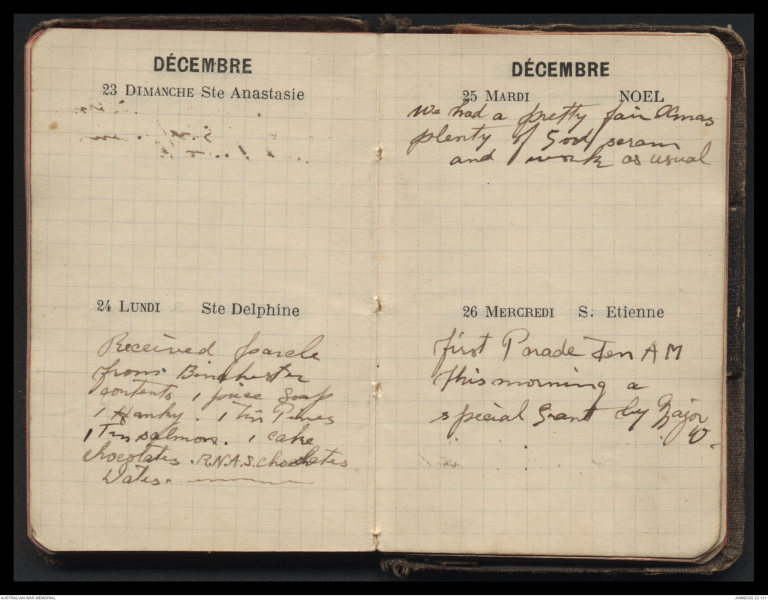 DÉCEMBRE
23 DIMANCHE Ste Anastasie
24 LUNDI Ste Delphine
Received parcle
from Binchester
contents 1 piece Soap
1 Hanky. 1 Tin Pines
1 Tin salmon. 1 cake
chocolates. R.N.A.S. chocolates
Dates.
DÉCEMBRE
25 MARDI NOEL
We had a pretty fair Xmas
plenty of
and work as usual
26 MERCREDI S. Etienne
First Parade Ten AM
this morning a
special Grant by Major
W.
AUSTRALIAN WAR MEMORIAL